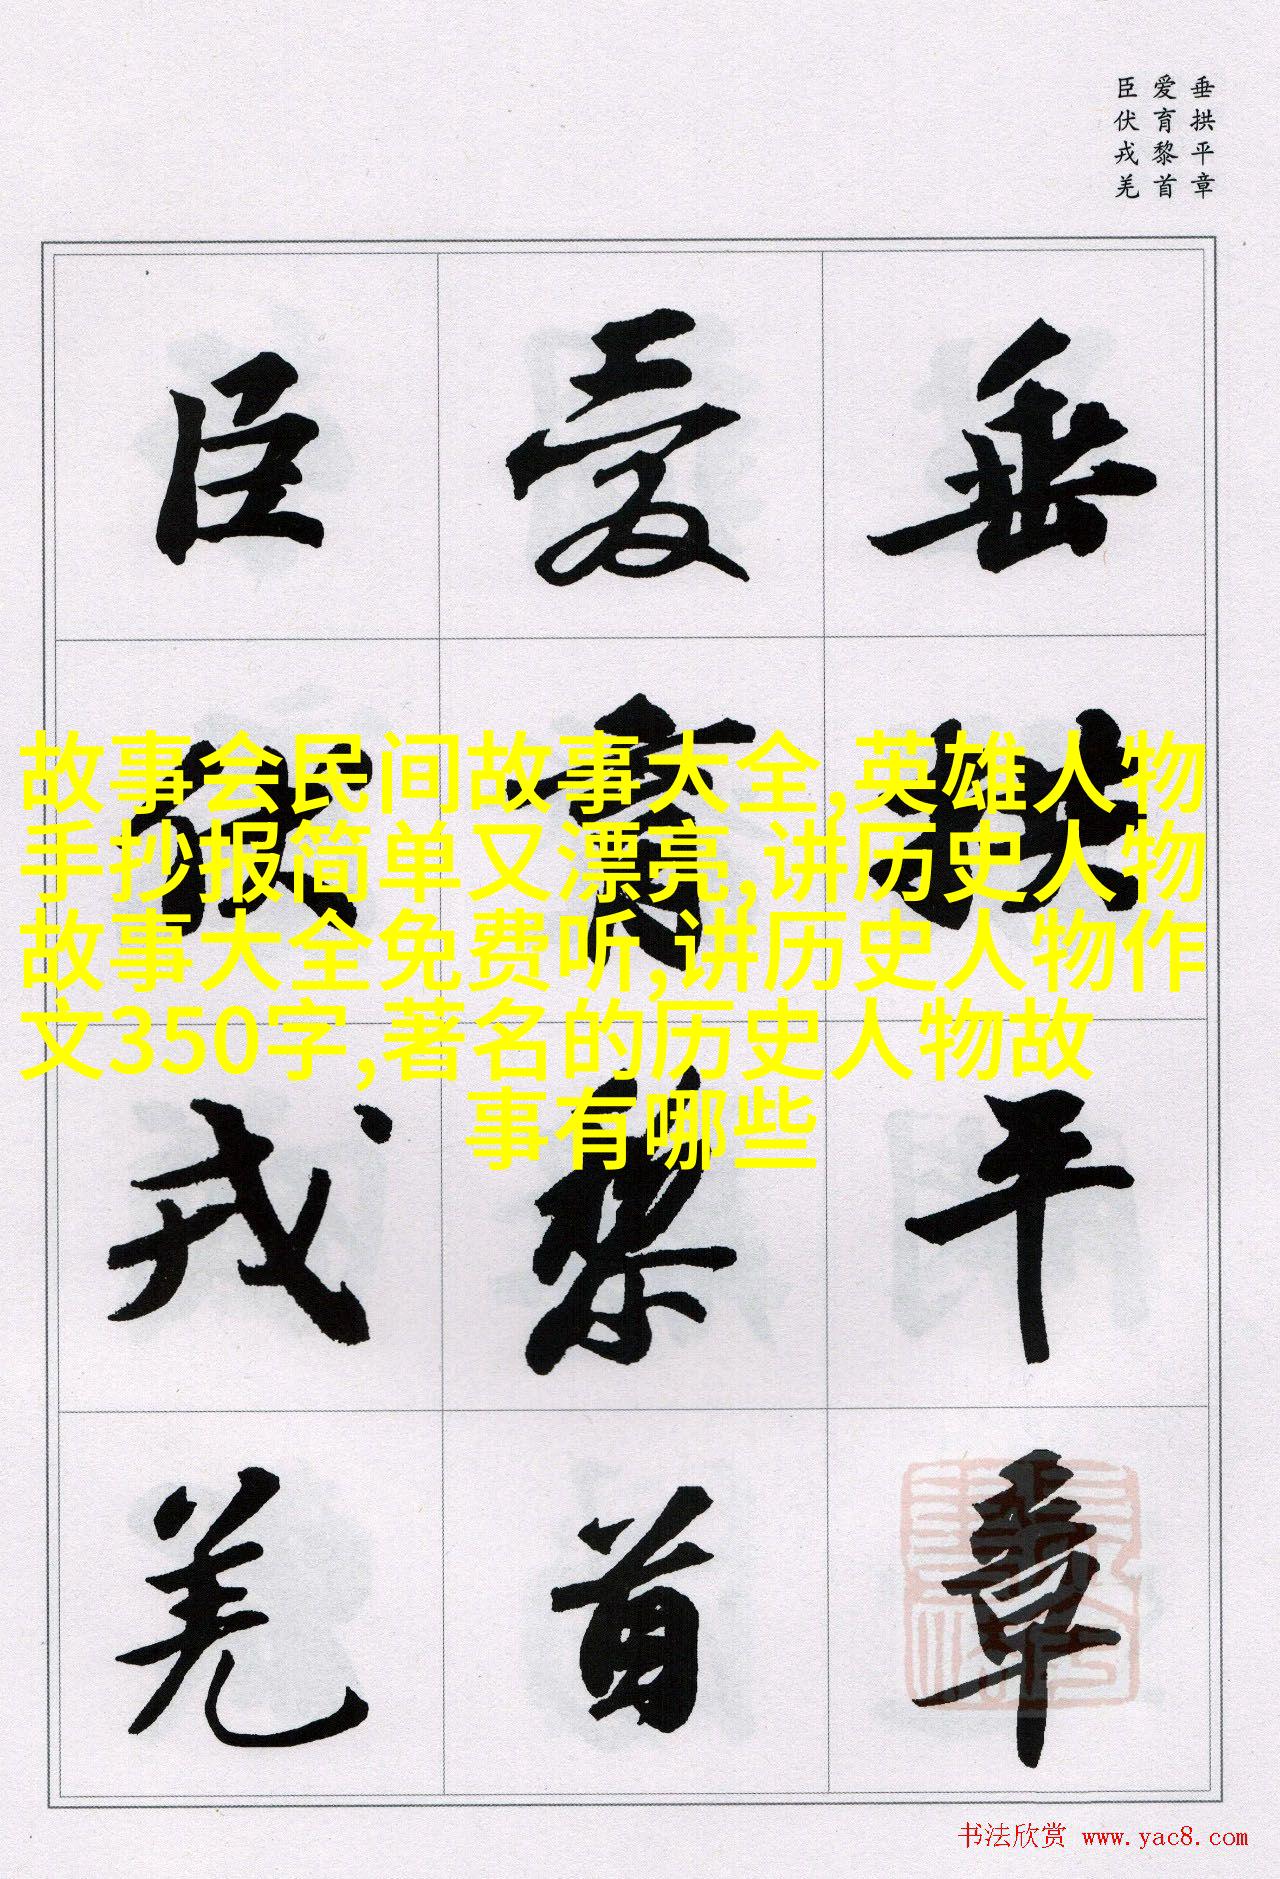 垂拱平章
爱育黎首
臣伏戎羌
垂拱平章
爱育黎首
臣伏戎羌
故事会民间故事大全,英雄人物
手抄报简单又漂亮,讲历史人物
故事大全免费听,讲历史人物作
文350字,著名的历史人物故
事有哪些
书法欣赏 www.yac8.com